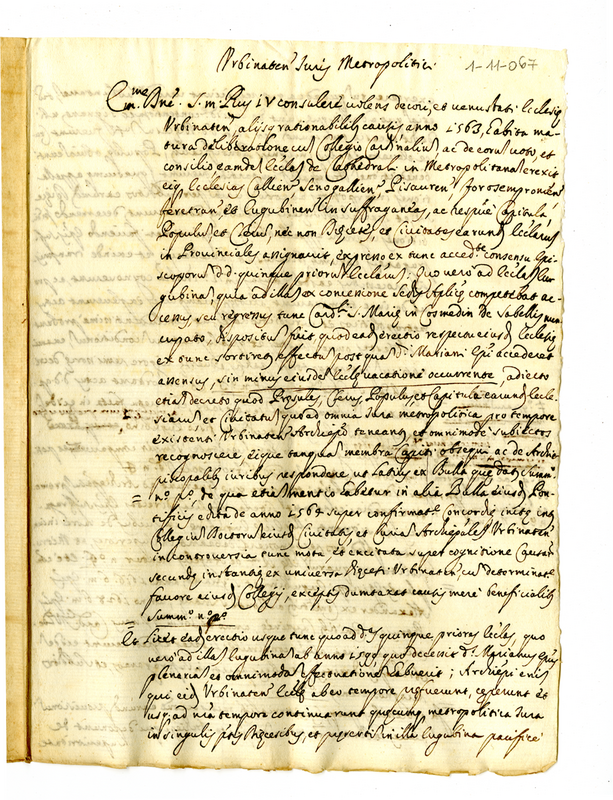 Urbinaten Juris Metropolitici
1-11-067
Eme. Dne. S. m. Pius IV consulere volens decori, et venustati Ecclesię
Urbinaten, alijsq rationabilibȝ causis anno 1563, habita ma-
tura deliberatione cum Collegio Cardinalium ac de eorum voto, et
consilio eamdem Ecclam de Cathedrali in Metropolitanam erexit
eiq, Ecclesias Callien Senogallien Pisauren forosempronien
feretran et Eugubinen in suffraganeas, ac respve Capitula,
Populos et Clerum, nec non Dięceses, et Civitates earund Ecclarum
in Provinciales assignavit, expresso ex tunc acced.te consensu Epi-
scoporum d.d. quinque priorum Ecclarum. Quo vero ad Ecclam Eu-
gubinam quia ad illam ex concessione Sedis Aplicę competebat ac-
cessus, seu regressus tunc Card.li S. Marię in Cosmedin de Sabellis nun-
cupato, dispositum fuit quod ead erectio respectu eiusd Ecclesię
ex tunc sortiretur effectum postquam d. Mariani Epi accederet
assensus, sin minus eiusdem Ecclę vacatione occurrente, adiecto
etiam decreto quod Pręsules, Clerus, Populus et Capitula earund Eccle-
siarum et Civitatum quoad omnia Jura metropolitica pro tempore
existenti Urbinaten Archiepo teneantur, et omnimode subiectos
recognoscere eique tanquam membra Capiti obsequi ac de Archie-
piscopalibȝ iuribus respondere ut latius ex Bulla que datur Summ.o
n.o p.o, de qua etiam mentio habetur in alia Bulla eiusd Pon-
tificis edita de anno 1564 super confirmat.e Concordię initę inter
Collegium Doctorum eiusd Civitatis et Curiam Archiepalem Urbinaten
in controversia tunc mota, et excitata super cognitione Causar
secundę instantię ex universa Dięcesi Urbinaten, cum determinat.e
favore eiusd Collegij, exceptis dumtaxat causis mere beneficialibȝ
Summ.o n.o
Et licet ead erectio usque tunc quoad d.as quinque priores Ecclas, quo
vero ad illam Eugubinam ab anno 1599 quo decessit d. Marianus Epus
plenariam et omnimodam effectuationem habuerit; Archiepi enim
qui eid Urbinaten Ecclę ab eo tempore pręfuerunt, ceperunt et
usq, ad nra tempora continuarunt quęcumq metropolitica Jura
in singulis Dięcesibus, et pręsertim in illa Eugubina pacifice